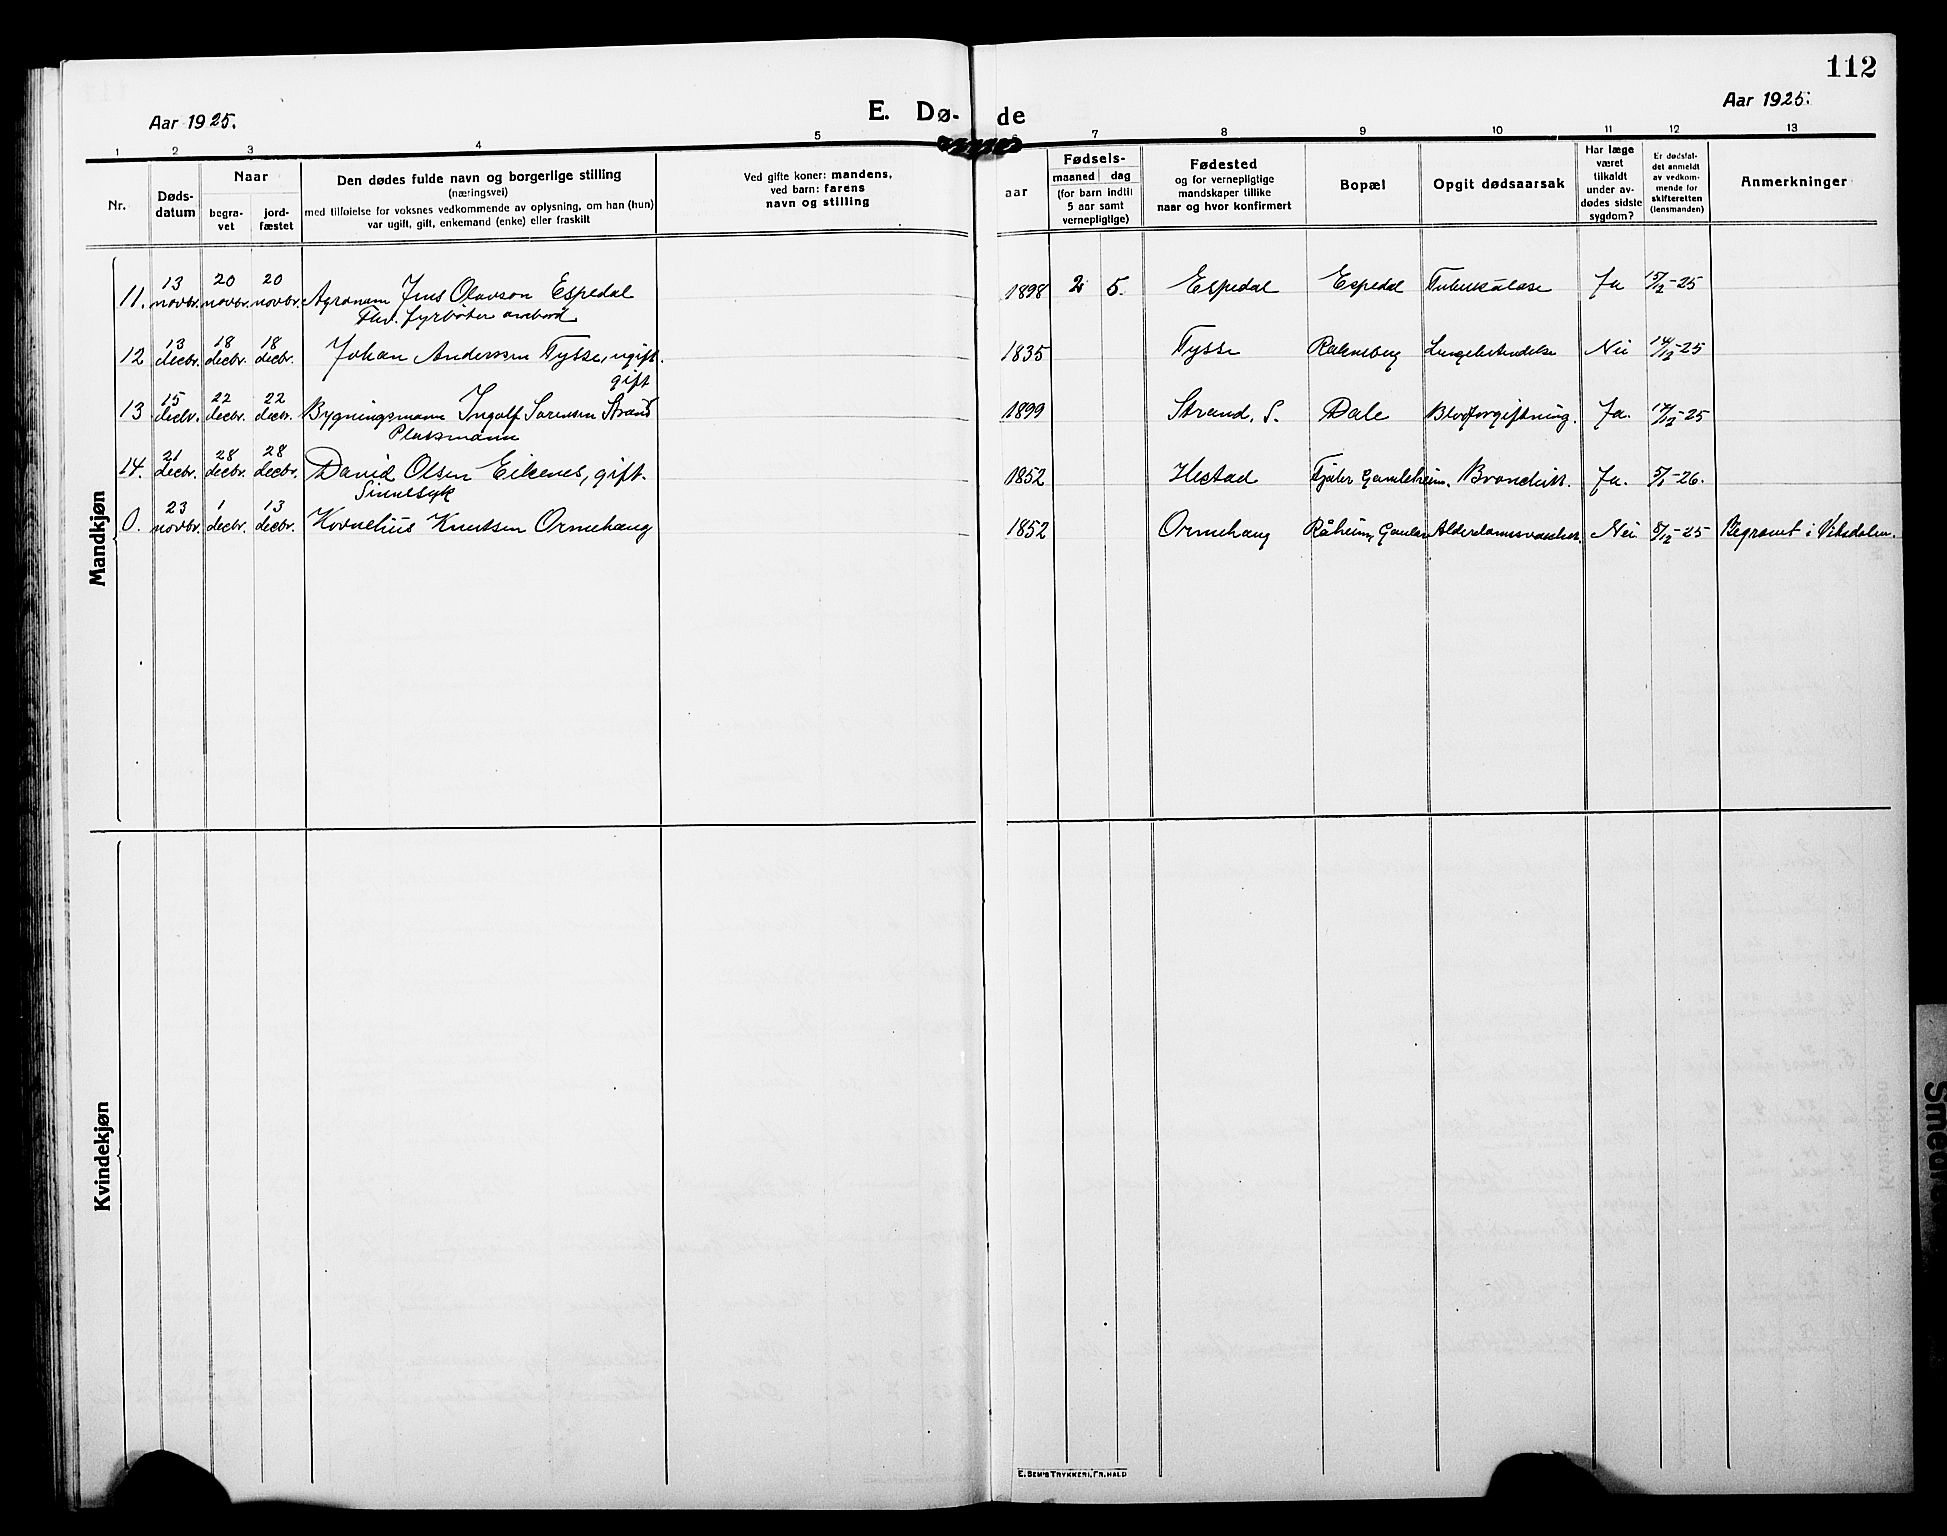 112
Aar 1925.
E. Dø- de
Aar 1925.
1 2 3 4 5 6 7 8 9 10 11 12 13
Nr.
Døds-
datum
Naar
begra-
vet
jord-
fæstet
Den dødes fulde navn og borgerlige stilling
(næringsvei)
med tilføielse for voksnes vedkommende av oplysning, om han (hun)
var ugift, gift, enkemand (enke) eller fraskilt
Ved gifte koner: mandens,
ved barn: farens
navn og stilling
aar
Fødsels-
maaned dag
(for barn indtil
5 aar samt
vernepligtige)
Fødested
og for vernepligtige
mandskaper tillike
naar og hvor konfirmert
Bopæl
Opgit dødsaarsak
Har læge
været
tilkaldt
under av-
dødes sidste
sygdom?
Er dødsfal-
det anmeldt
av vedkom-
mende for
skifteretten
(lensmanden)
Anmerkninger
Mandkjøn
13 20 20
11. novbr. novbr. novbr. Agronom Jens Olavson Espedal 1898 2 5. Espedal Espedal Tuberkulose Ja 15/12-25
Fhv. fyrbøter ombord
13 18 18
12 decbr. decbr. decbr. Johan Anderssen Tysse, ugift. 1835 Tysse Lungebetændelse Nei 14/12-25
gift
15 22 22
13 decbr. decbr. decbr. Bygningsmann Ingolf Sørensen Strand 1899 Strand, S. Dale Blodforgiftning. Ja. 17/12-25
Plassmann
21 28 28
14. decbr. decbr. decbr. David Olsen Eikenes, gift. 1852 Hestad Fjaler Gamleheim. Bronchitt. Ja. 5/1-26.
Sinnssyk
23 1 13
0. novbr. decbr. decbr. Kornelius Knutsen Ormehaug 1852 Ormehaug Råheim, Gaular Alderdomssvækkelse. Nei 5/12-25 Begravet i Viksdalen.
Kvindekjøn
E. SEM'S TRYKKERI, FR.HALD